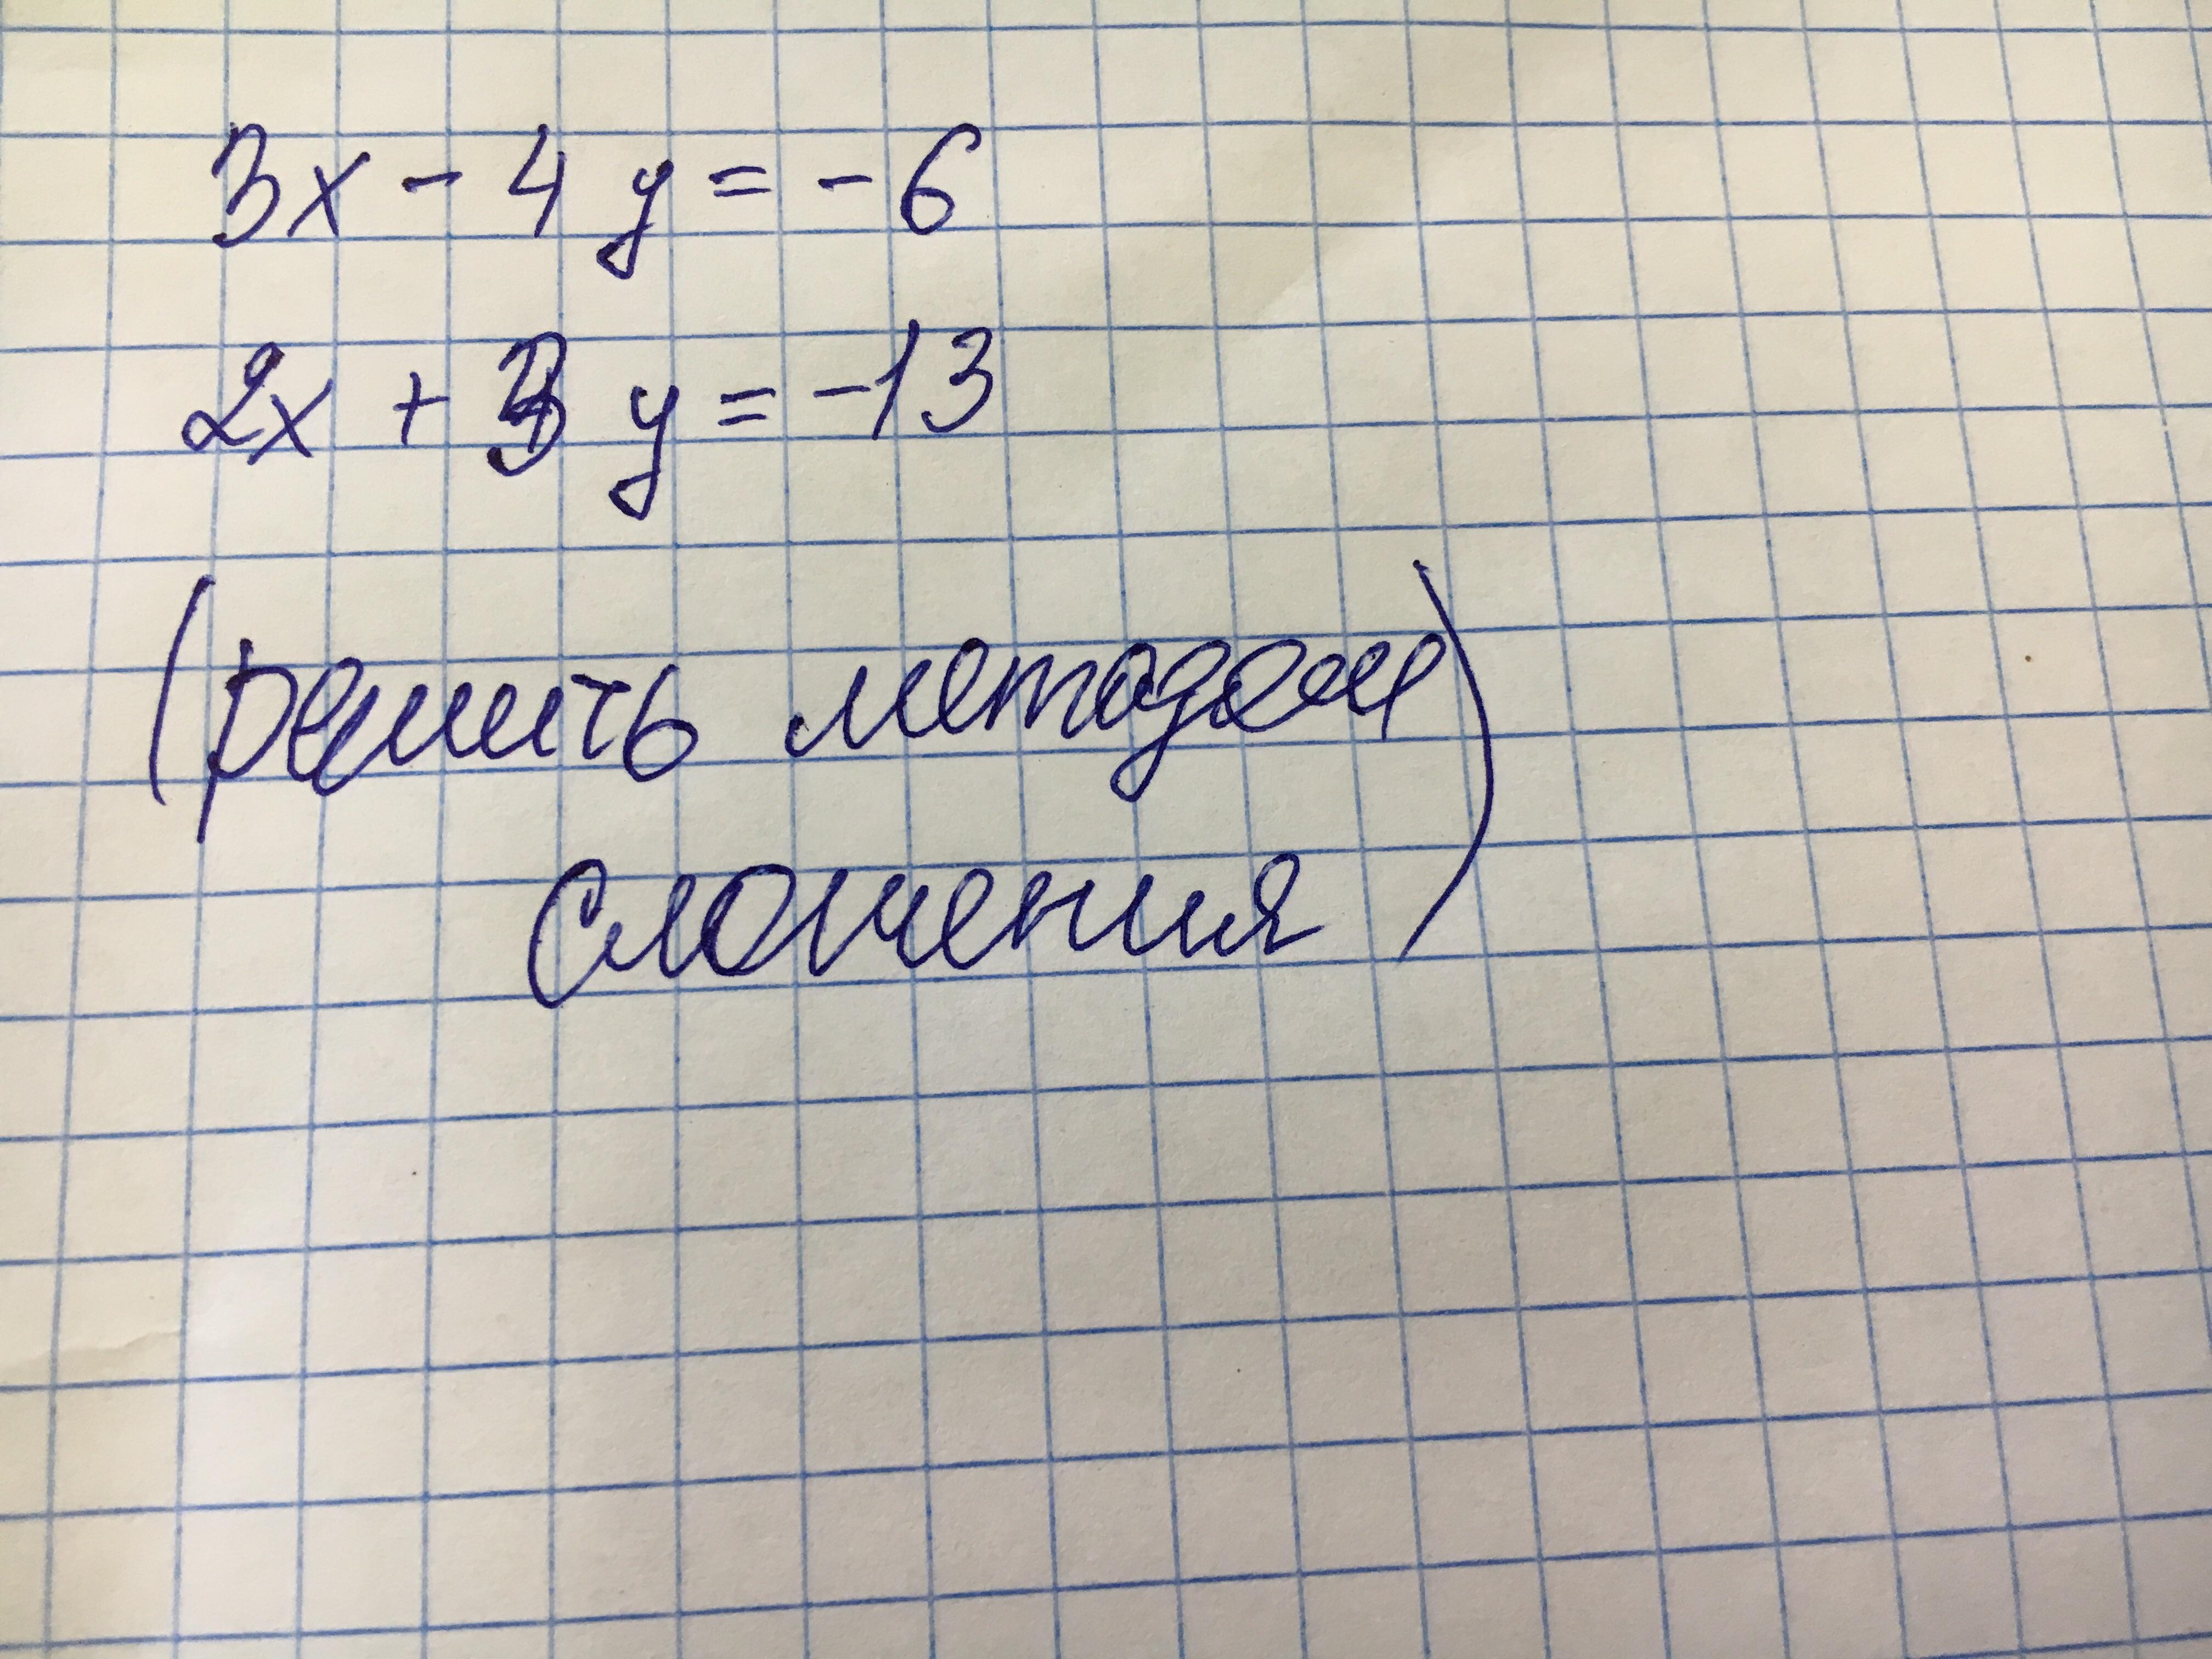 3x - 4y = -6
2x + 3y = -13
(решить методом
сложения)